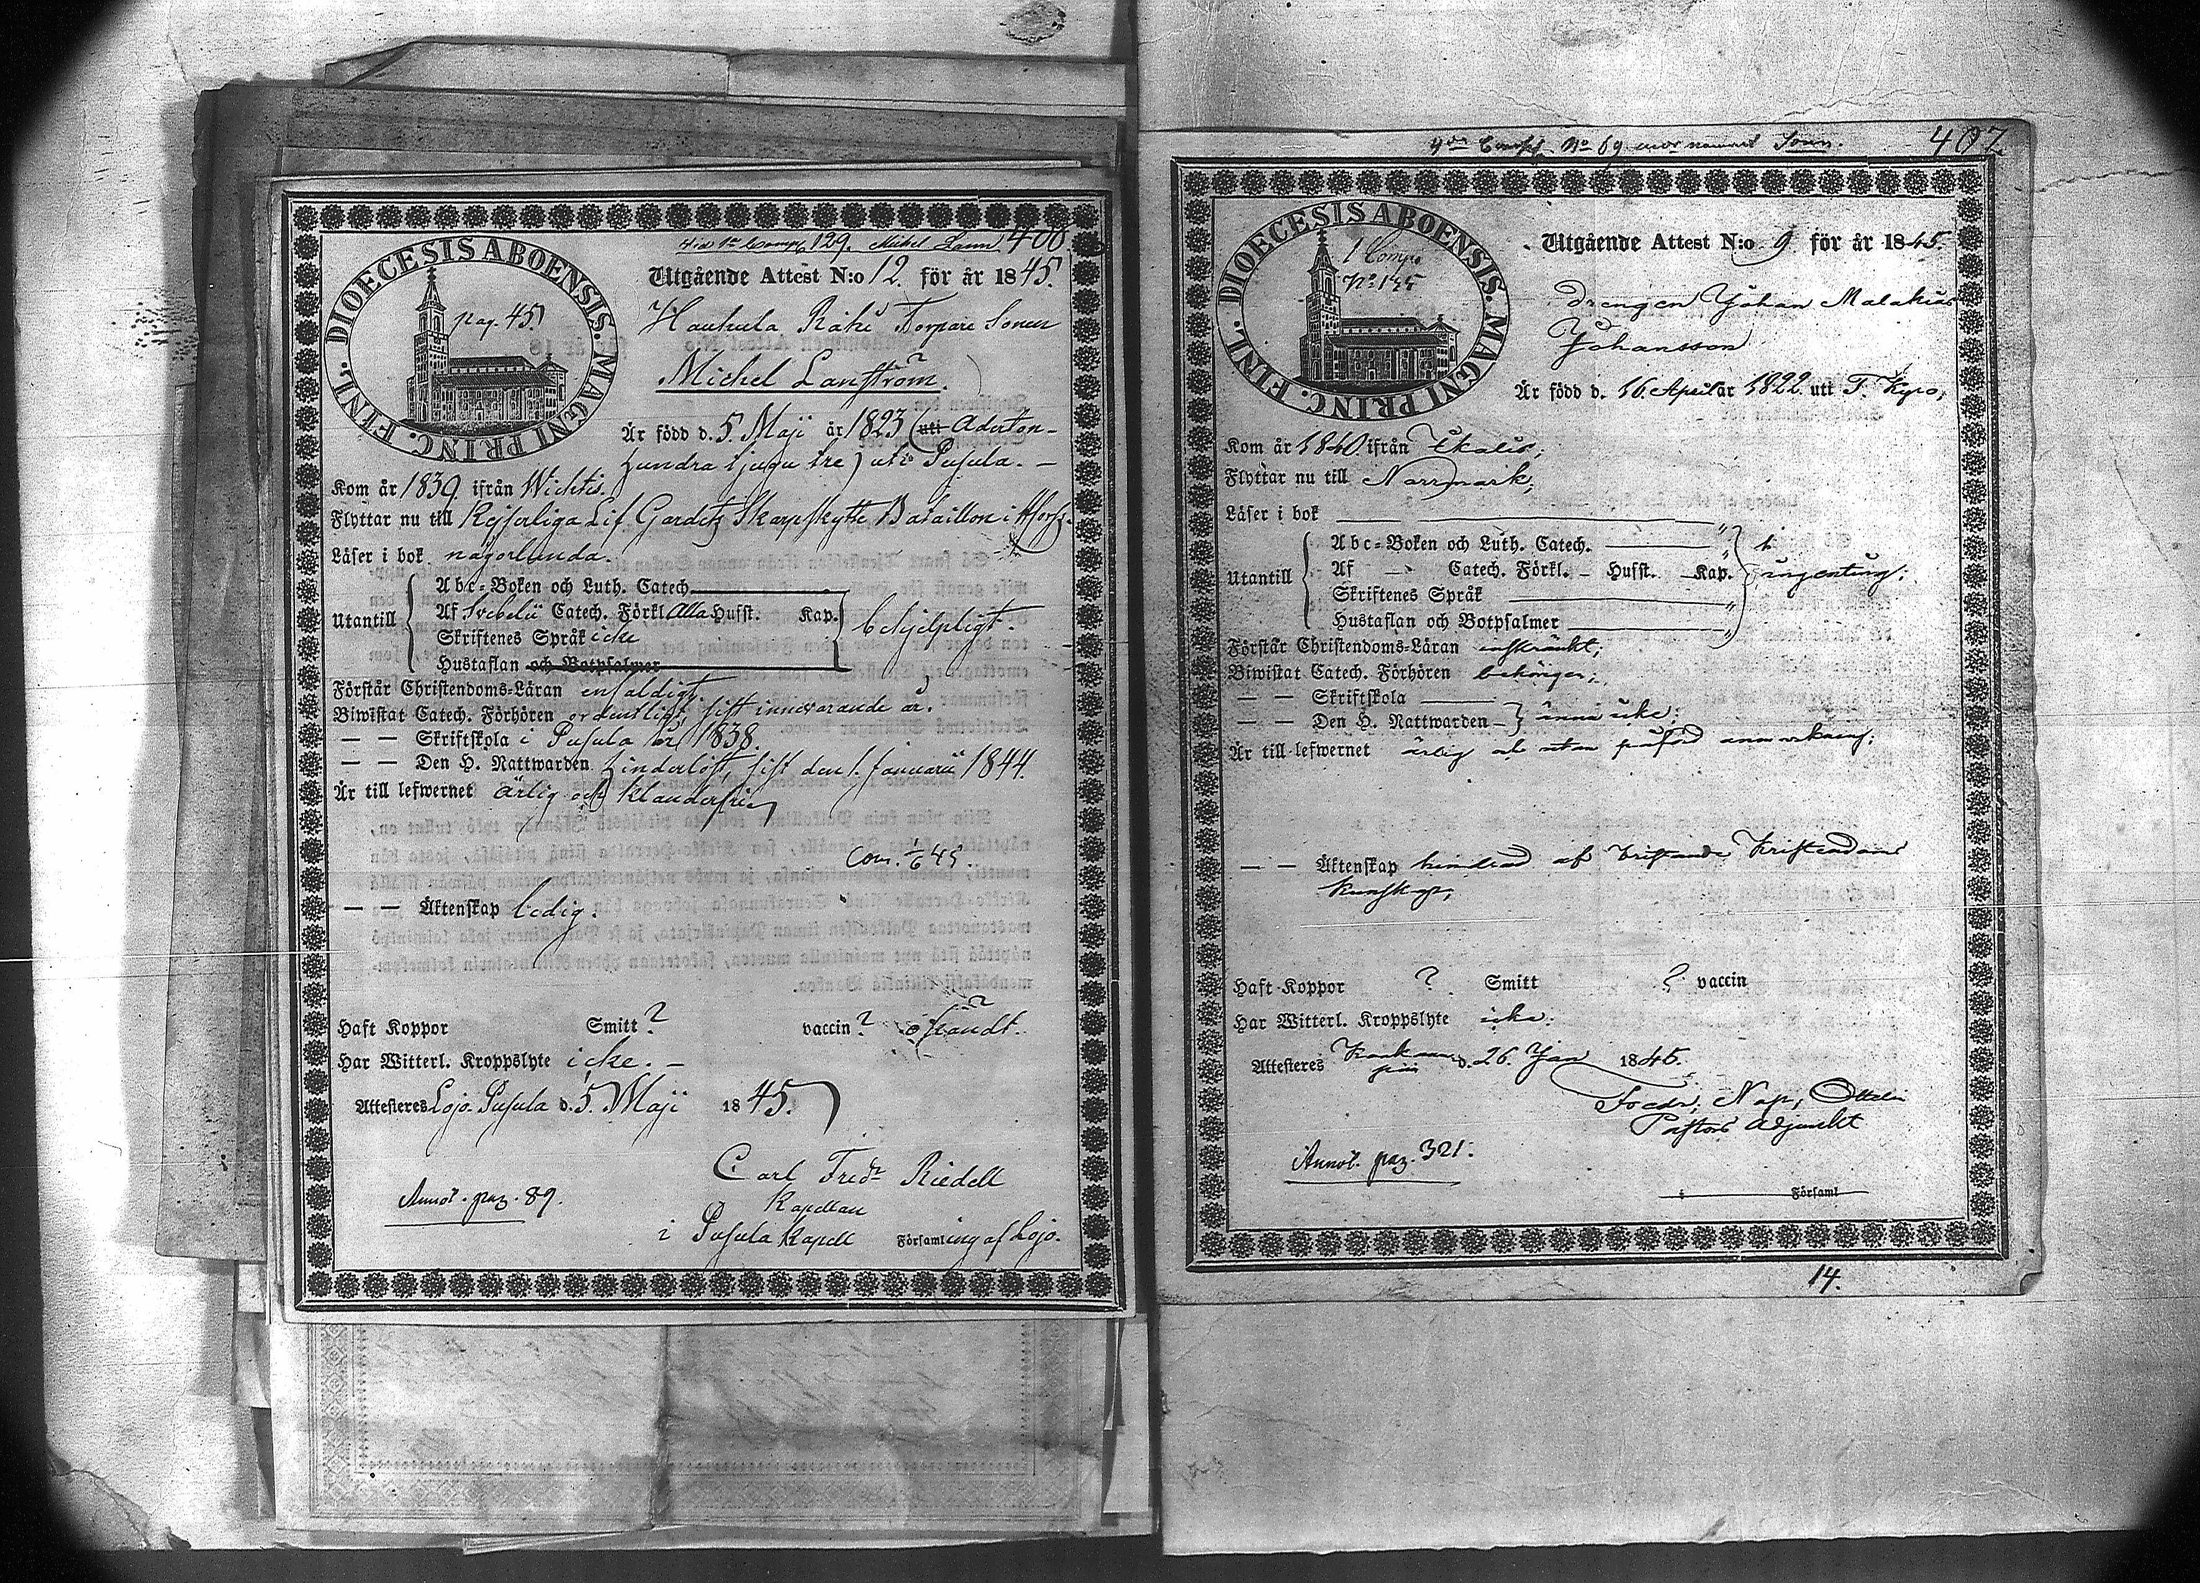 406
129. Michel Lann
DIOECESIS ABOENSIS. MAGNI PRINC. FINL.
pag. 45.
Utgående Attest N:o 12. för år 1845.
Haukula Räki Torpare Sonen
Michel Lanström.
Är född d. 5. Maji år 1823 (uti Aderton-
hundra tjugu tre) uti Pusula. –
Kom år 1839. ifrån Wichtis.
Flyttar nu till Kejserliga Lif Gardets Skarpskytte Bataillon i Hforss.
Läser i bok någorlunda.
Utantill
Abc-Boken och Luth. Catech.
Af Svebelii Catech. Förkl. Alla Husft. Kap.
Skriftenes Språk icke
Hustaflan och Botpsalmer
behjelpligt.
Förstår Christendoms-Läran enfaldigt.
Biwistat Catech. Förhören ordentligt, sist innevarande år.
— — Skriftskola i Pusula år 1838.
— — Den H. Nattwarden hinderlöst, sist den 1. Januarii 1844.
Är till lefwernet ärlig och klanderfri
Com. 1/6 45
— — Äktenskap ledig.
Haft Koppor Smitt ? vaccin ?
Har Witterl. Kroppslyte icke. –
Attesteres Lojo Pusula d. 5. Maji 1845.
Carl Fredr Riedell
Kapellan
i Pusula Kapell Församling af Lojo.
Annot. pag. 89.
No 69 Jonn.
407
DIOECESIS ABOENSIS. MAGNI PRINC. FINL.
1 Comp.
No 135
Utgående Attest N:o 9 för år 1845.
Drengen Johan Malakias
Johansson
Är född d. 16 April år 1822 uti T. Kyro,
Kom år 1840 ifrån Ikalis;
Flyttar nu till Norrmark;
Läser i bok
Utantill
Abc-Boken och Luth. Catech.
Af — Catech. Förkl. — Husft. Kap.
Skriftenes Språk
Hustaflan och Botpsalmer
ingenting;
Förstår Christendoms-Läran inskränkt;
Biwistat Catech. Förhören behörigen;
— — Skriftskola
— — Den H. Nattwarden
ännu icke;
Är till lefwernet ärlig och utan påförd anmärkning.
— — Äktenskap hindrad af bristande Kristendoms
kunskap;
Haft Koppor ? Smitt ? vaccin
Har Witterl. Kroppslyte icke.
Attesteres d. 26 Jan 1845.
Fredr, Nap, Ottelin
Pastors Adjunkt
Annot. pag. 321.
i Församl
14.